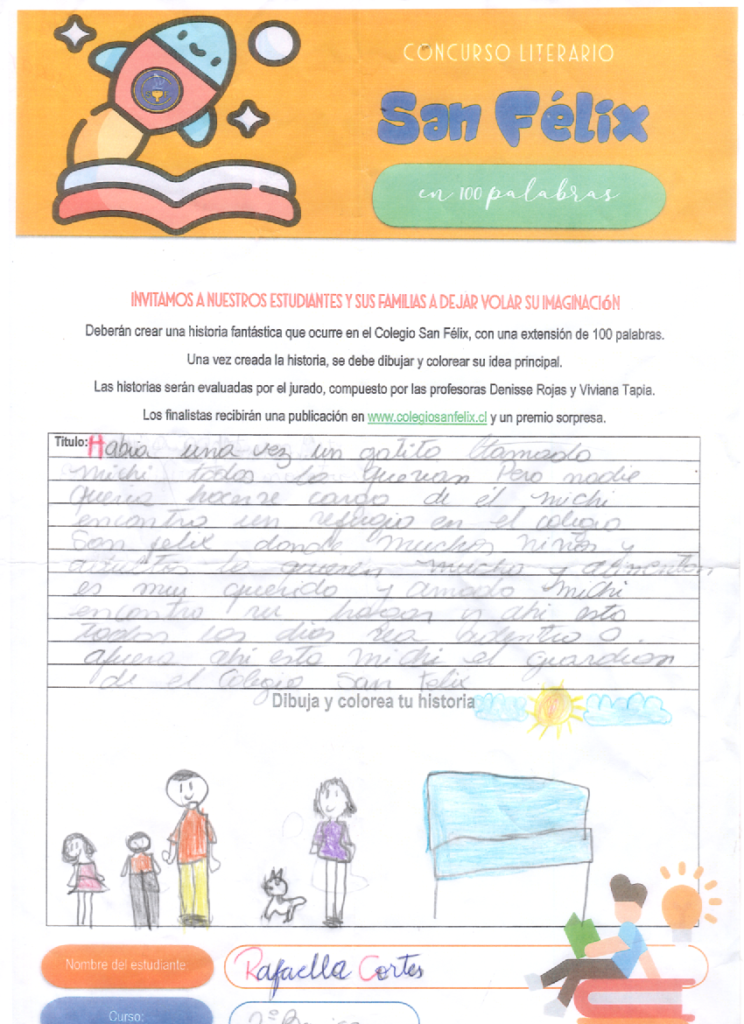 CONCURSO LITERARIO
San Félix
en 100 palabras
INVITAMOS A NUESTROS ESTUDIANTES Y SUS FAMILIAS A DEJAR VOLAR SU IMAGINACIÓN
Deberán crear una historia fantástica que ocurre en el Colegio San Félix, con una extensión de 100 palabras.
Una vez creada la historia, se debe dibujar y colorear su idea principal.
Las historias serán evaluadas por el jurado, compuesto por las profesoras Denisse Rojas y Viviana Tapia.
Los finalistas recibirán una publicación en www.colegiosanfelix.cl y un premio sorpresa.
Título: Habia una vez un gatito llamado
michi todos lo querian Pero nadie
queria hacerse cargo de él michi
encontro un refugio en el colegio
San felix donde muchos niños y
adultos lo quieren mucho y alimentan
es muy querido y amado Michi
encontro su hogar y ahi esta
todos los dias sea adentro o
afuera ahi esta michi el guardian
de el Colegio San Felix
Dibuja y colorea tu historia
Nombre del estudiante: Rafaella Cortes
Curso: 2º Basico